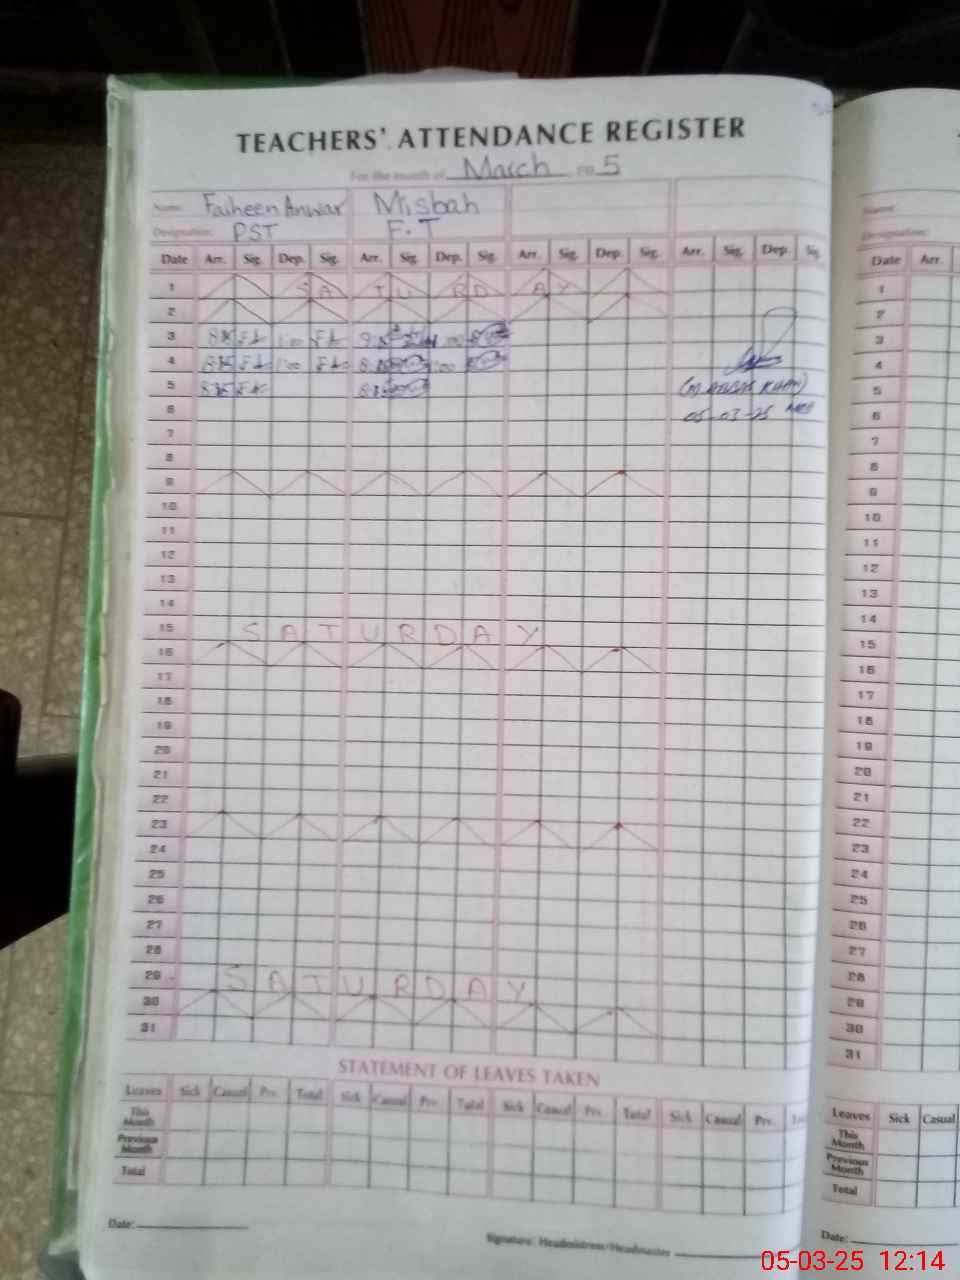 TEACHERS' ATTENDANCE REGISTER
For the month of March 5
Name: Anwar Misbah
Designation: PST F.T
Date Arr. Sig. Dep. Sig. Arr. Sig. Dep. Sig. Arr. Sig. Dep. Sig. Arr. Sig. Dep. Sig.
1 SATURDAY
2
3 1:00
4 1:00
5
6
05-03-25
7
8
9
10
11
12
13
14
15 SATURDAY
16
17
18
19
20
21
22
23
24
25
26
27
28
29 SATURDAY
30
31
STATEMENT OF LEAVES TAKEN
Leaves Sick Casual Prv. Total Sick Casual Prv. Total Sick Casual Prv. Total Sick Casual Prv.
This Month
Previous Month
Total
Date:
Signature: Headmistress/Headmaster
Name:
Designation:
Date Arr.
1
2
3
4
5
6
7
8
9
10
11
12
13
14
15
16
17
18
19
20
21
22
23
24
25
26
27
28
29
30
31
Leaves Sick Casual
This Month
Previous Month
Total
Date:
05-03-25 12:14